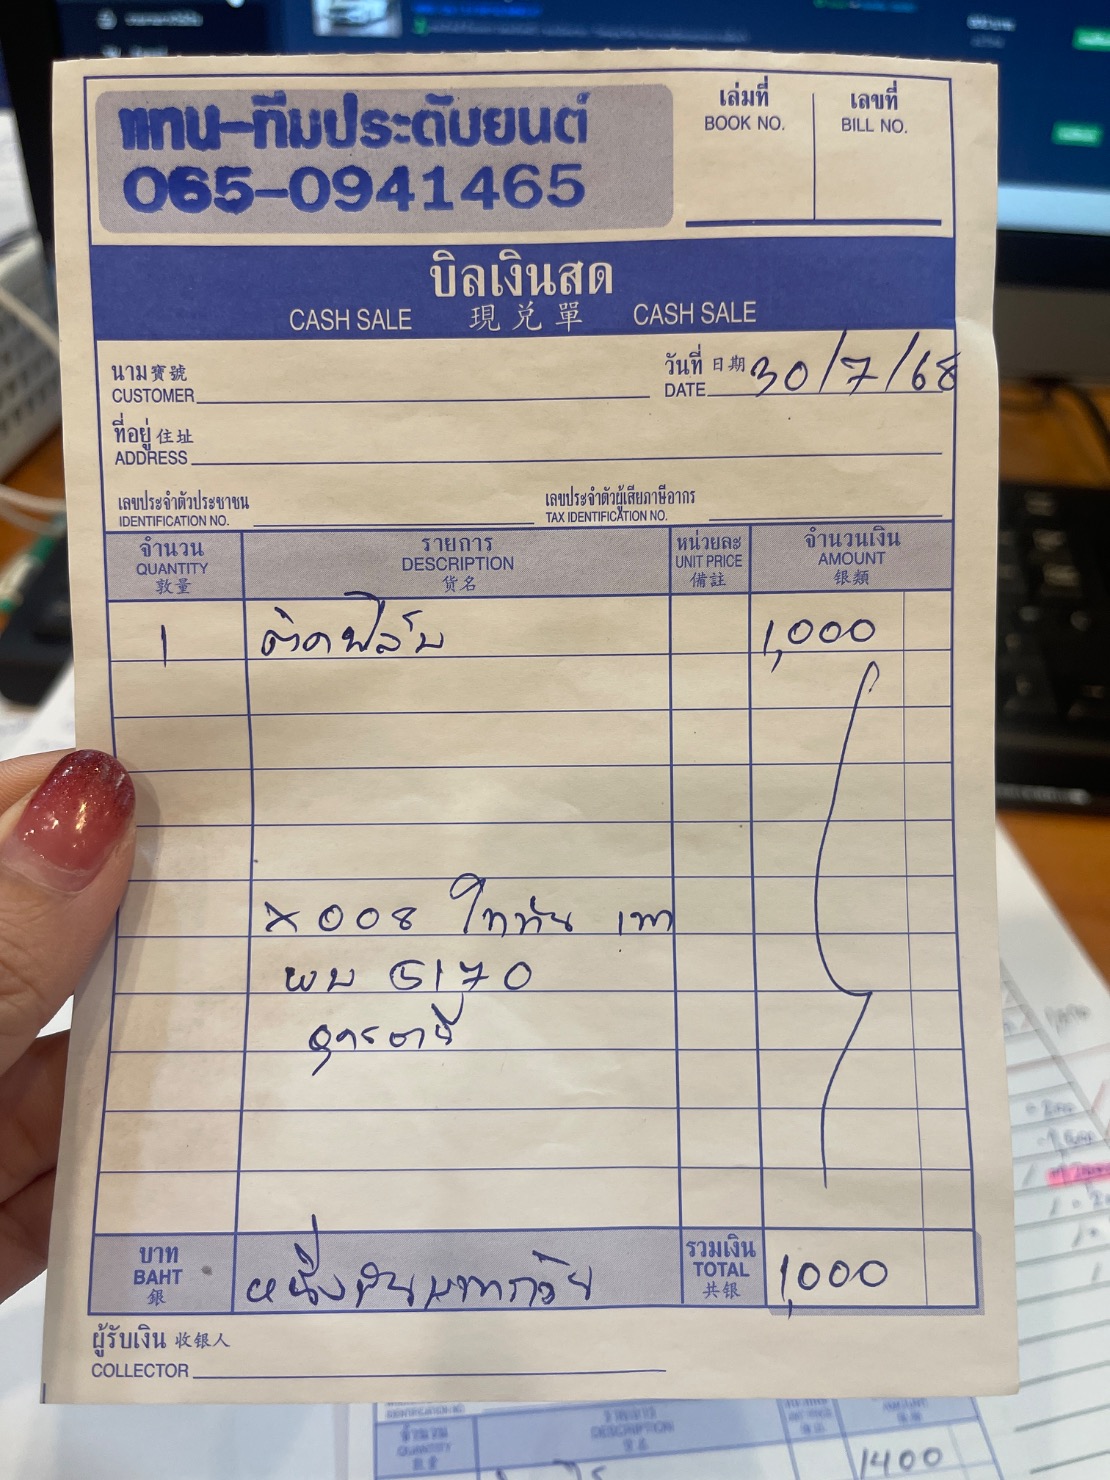 แทน-ทีมประดับยนต์
065-0941465
เล่มที่
BOOK NO.
เลขที่
BILL NO.
บิลเงินสด
CASH SALE 現兑單 CASH SALE
นาม寶號
CUSTOMER
วันที่ 日期 30/7/68
DATE
ที่อยู่ 住址
ADDRESS
เลขประจำตัวประชาชน
IDENTIFICATION NO.
เลขประจำตัวผู้เสียภาษีอากร
TAX IDENTIFICATION NO.
จำนวน
QUANTITY
数量
รายการ
DESCRIPTION
货名
หน่วยละ
UNIT PRICE
備註
จำนวนเงิน
AMOUNT
银類
1 ติดฟิล์ม 1,000
X008 ไททัน เทา
ผบ 5170
อุดรธานี
บาท
BAHT
銀
หนึ่งพันบาทถ้วน
รวมเงิน
TOTAL
共银
1,000
ผู้รับเงิน 收银人
COLLECTOR
IDENTIFICATION NO.
จำนวน
QUANTITY
DESCRIPTION
AMOUNT
1400